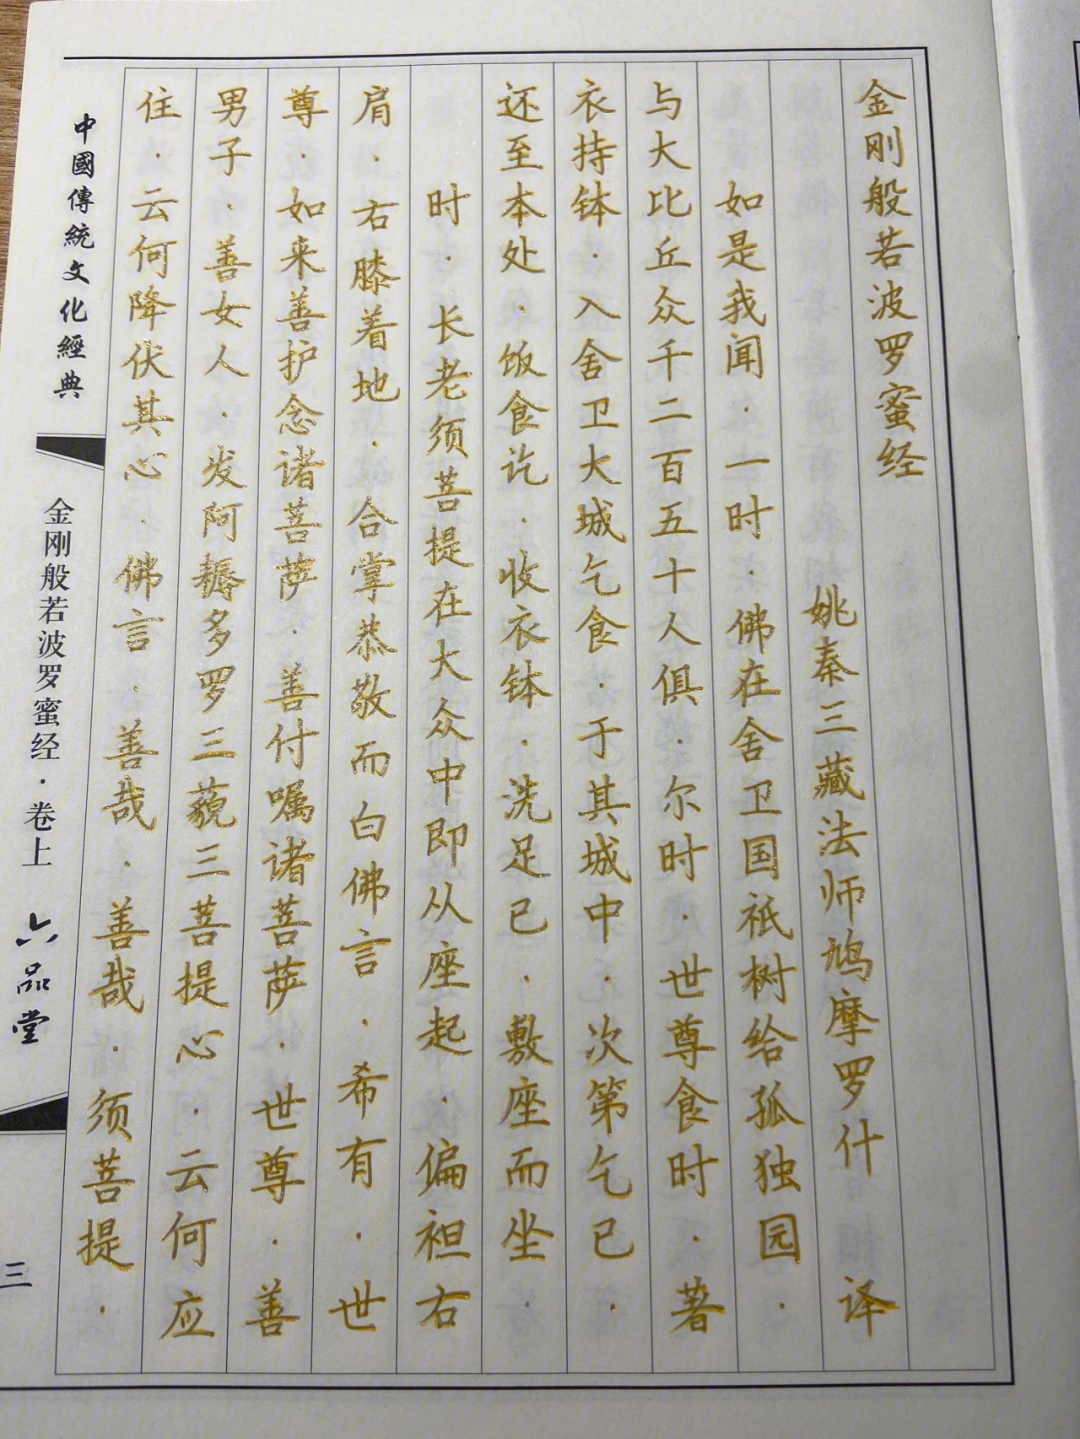 金刚般若波罗蜜经
姚秦三藏法师鸠摩罗什 译
如是我闻．一时．佛在舍卫国祇树给孤独园．
与大比丘众千二百五十人俱．尔时．世尊食时．著
衣持钵．入舍卫大城乞食．于其城中．次第乞已．
还至本处．饭食讫．收衣钵．洗足已．敷座而坐．
时．长老须菩提在大众中即从座起．偏袒右
肩．右膝着地．合掌恭敬而白佛言．希有．世
尊．如来善护念诸菩萨．善付嘱诸菩萨．世尊．善
男子．善女人．发阿耨多罗三藐三菩提心．云何应
住．云何降伏其心．佛言．善哉．善哉．须菩提．
中國傳統文化經典
金刚般若波罗蜜经·卷上
六品堂
三